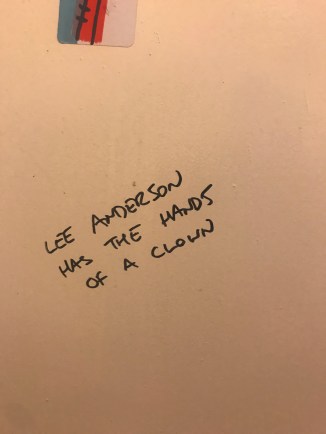 LEE ANDERSON
HAS THE HANDS
OF A CLOWN